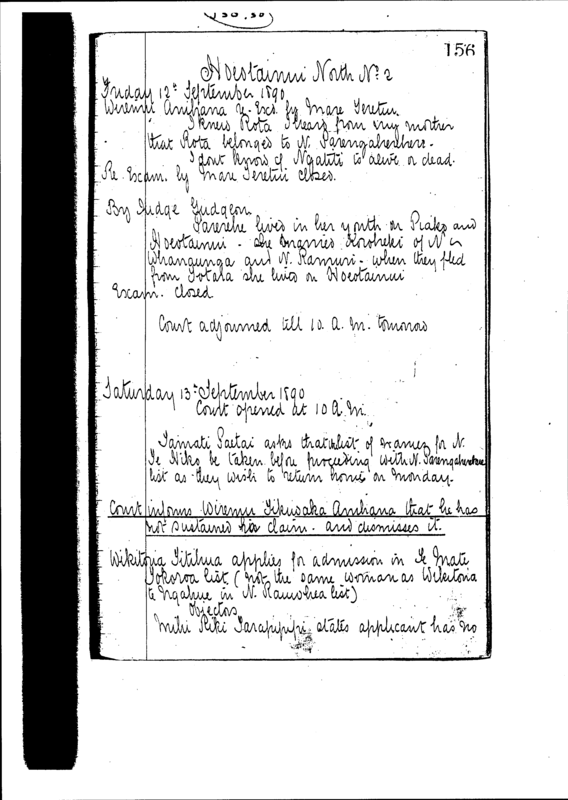 156
Hoeotainui North No 2
Friday 12th September 1890
Wiremu Amhana re-Exd. by Mare Teretiu
I knew Rota I heard from my mother
that Rota belonged to N.
I dont know if Ngatiti is alive or dead.
Re-Exam. by Mare Teretiu closed.
By Judge Gudgeon
lived in her youth on Piako and
Hoeotainui - she married of N
Whanaunga and N. Ramuri - when they fled
from Totara she lived on Hoeotainui
Exam. closed
Court adjourned till 10. A. M. tomorrow
Saturday 13th September 1890
Court opened at 10 A.M.
Tamati Paetai asks that list of names for N.
Te Niko be taken before proceeding with N.
list as they wish to return home on Monday.
Court informs Wiremu Amhana that he has
not sustained his claim - and dismisses it.
Wikitoria Titihua applies for admission in Te Mate
Tokoroa list (not the same woman as Wikitoria
te Ngahue in N. list)
Objectors
Mihi Piki states applicant has no